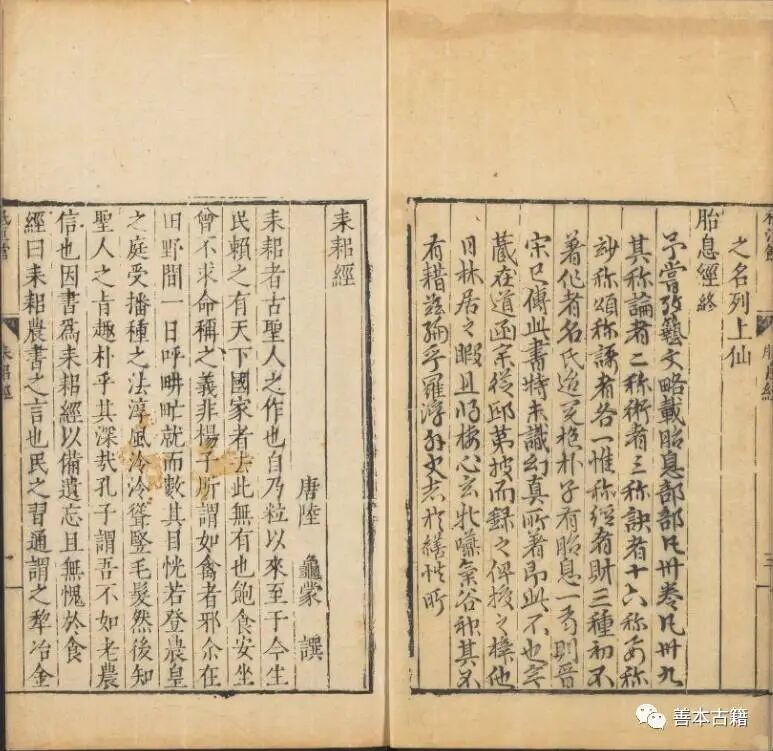 之名列上仙
胎息經終
予嘗攷藝文略載胎息部部凡卅卷凡卅九
其稱論者二稱術者三稱訣者十六稱稱
玅稱頌稱者各一惟稱經者財三種初不
著作者名氏迨見抱朴子有胎息一則晉
宋已傳此書特未識幻真所著即此不也
蔵在道函宗從邱第披而録之俾授之梓他
日林居之暇且將棲心玄牝嚥氣谷神其不
有藉茲編乎羅浮外史志於繕性所
耒耜經
唐陸 龜蒙 撰
耒耜者古聖人之作也自乃粒以來至于今生
民賴之有天下國家者去此無有也飽食安坐
曾不求命稱之義非楊子所謂如禽者邪余在
田野間一日呼畊甿就而數其目恍若登農皇
之庭受播種之法淳風泠泠聳豎毛髮然後知
聖人之旨趣朴乎其深哉孔子謂吾不如老農
信也因書爲耒耜經以備遺忘且無愧於食
經曰耒耜農書之言也民之習通謂之犂冶金
耒耜經
善本古籍